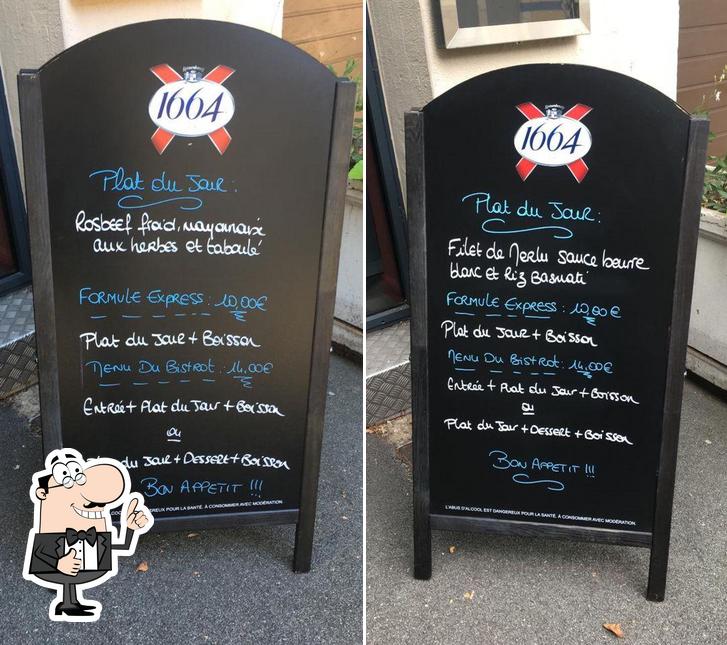 1664
Plat du Jour :
Rosbeef froid, mayonnaise
aux herbes et taboulé
FORMULE EXPRESS : 10,00€
Plat du Jour + Boisson
MENU DU BISTROT : 14,00€
Entrée + Plat du Jour + Boisson
ou
du Jour + Dessert + Boisson
BON APPETIT !!!
POUR LA SANTÉ. À CONSOMMER AVEC MODÉRATION.
1664
Plat du Jour :
Filet de Merlu sauce beurre
blanc et Riz Basmati
FORMULE EXPRESS : 10,00€
Plat du Jour + Boisson
MENU DU BISTROT : 14,00€
Entrée + Plat du Jour + Boisson
ou
Plat du Jour + Dessert + Boisson
BON APPETIT !!!
L'ABUS D'ALCOOL EST DANGEREUX POUR LA SANTÉ. À CONSOMMER AVEC MODÉRATION.